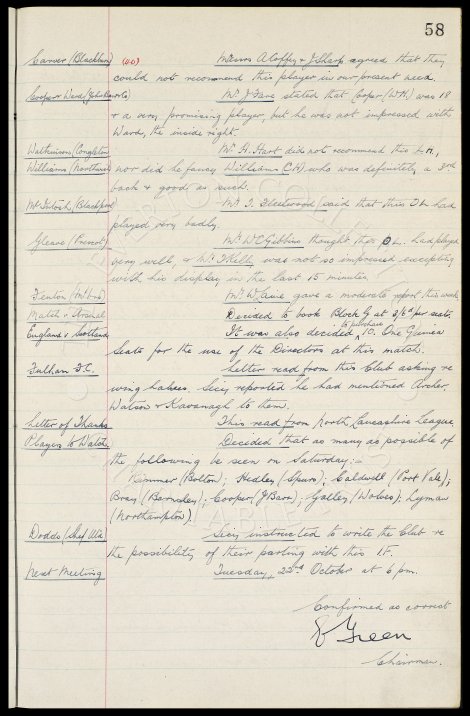 58
Carver (Blackburn) (40) Messrs A Coffey & J Sharp agreed that they
could not recommend this player in our present need.
Cooper & Ward (Johnson's) Mr J Fare stated that Cooper (W.H.) was 18
& a very promising player, but he was not impressed with
Ward, the inside right.
(Congleton Mr H. Hart did not recommend this L.H.,
Williams (Northwich) nor did he fancy Williams (C.H.) who was definitely a 3rd
back & good as such.
McIntosh (Blackpool) Mr T. Fleetwood said that this O L had
played very badly.
Gleave (Prescot) Mr W C Gibbins thought this O L. had played
very well, & Mr T Kelly was not so impressed excepting
with his display in the last 15 minutes.
Fenton (M'bro) Mr W. gave a moderate report this week.
Match v Arsenal Decided to book Block G at 3/6d per seat.
England v Scotland It was also decided to purchase 10. One Guinea
Seats for the use of the Directors at this match.
Fulham F.C. Letter read from this Club asking re
wing halves. Secy reported he had mentioned Archer,
Watson & Kavanagh to them.
Letter of Thanks This read from North Lancashire League.
Players to Watch Decided that as many as possible of
the following be seen on Saturday:-
(Bolton); Medley (Spurs); Caldwell (Port Vale);
Bray (Barnsley); Cooper (J Bars); Galley (Wolves); Lyman
(Northampton).
Dodds (Shef Utd) Secy instructed to write the Club re
the possibility of their parting with this I.F.
Next Meeting Tuesday, 22nd October at 6 pm.
Confirmed as correct
Green
Chairman.